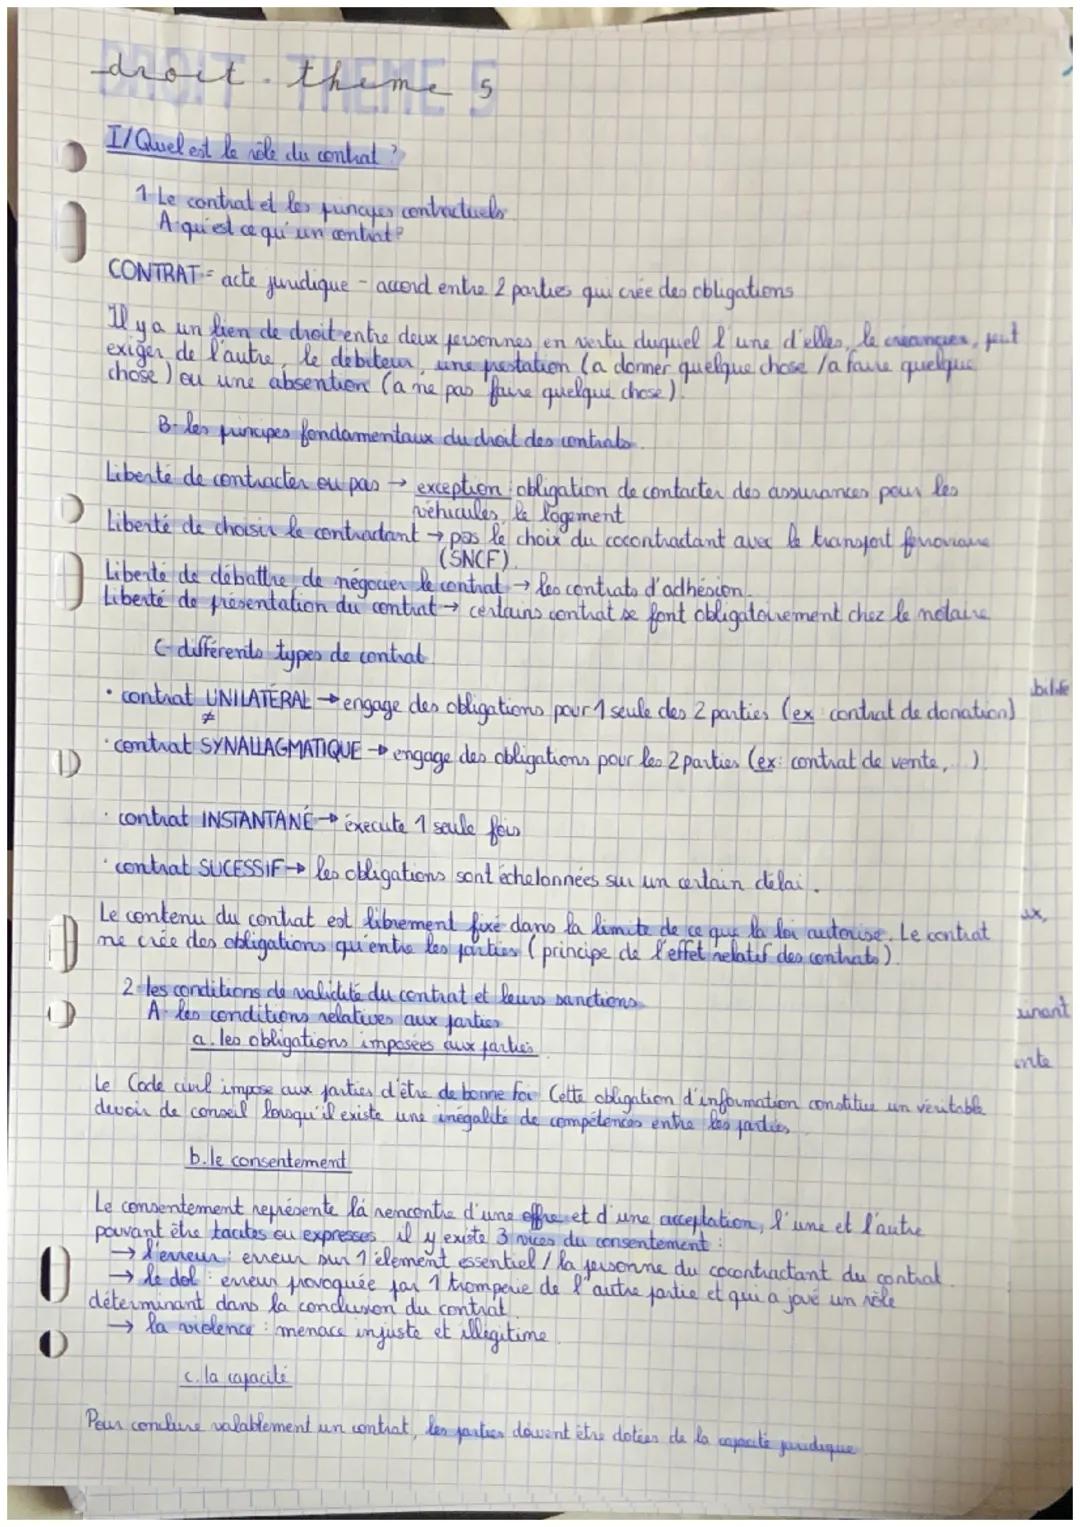 DROIT - THEME 5
droit - theme 5
I/ Quel est le rôle du contrat ?
1- Le contrat et les principes contractuels
A- qu'est ce qu'un contrat ?
CONTRAT = acte juridique - accord entre 2 parties qui crée des obligations
Il y a un lien de droit entre deux personnes en vertu duquel l'une d'elles, le créancier, peut
exiger de l'autre, le débiteur, une prestation (a donner quelque chose / a faire quelque
chose) ou une absention (a ne pas faire quelque chose).
B- les principes fondamentaux du droit des contrats.
Liberté de contracter ou pas → exception : obligation de contacter des assurances pour les
véhicules, le logement
Liberté de choisir le contractant → pas le choix du cocontractant avec le transport ferroviaire
(SNCF).
Liberté de débattre, de négocier le contrat → les contrats d'adhésion.
Liberté de présentation du contrat → certains contrat se font obligatoirement chez le notaire
C- différents types de contrat
• contrat UNILATÉRAL → engage des obligations pour 1 seule des 2 parties (ex : contrat de donation)
bilité
≠
• contrat SYNALLAGMATIQUE → engage des obligations pour les 2 parties (ex : contrat de vente, ...)
• contrat INSTANTANÉ → éxecute 1 seule fois
• contrat SUCESSIF → les obligations sont échelonnées sur un certain délai.
Le contenu du contrat est librement fixé dans la limite de ce que la loi autorise. Le contrat
ne crée des obligations qu'entre les parties (principe de l'effet relatif des contrats).
2- les conditions de validité du contrat et leurs sanctions
A- les conditions relatives aux parties
a. les obligations imposées aux parties
Le Code civil impose aux parties d'être de bonne foi. Cette obligation d'information constitue un véritable
devoir de conseil lorsqu'il existe une inégalité de compétences entre les parties
b. le consentement
Le consentement représente la rencontre d'une offre et d'une acceptation, l'une et l'autre
pouvant être tacites ou expresses, il y existe 3 vices du consentement :
→ l'erreur : erreur sur 1 élement essentiel / la personne du cocontractant du contrat.
→ le dol : erreur provoquée par 1 tromperie de l'autre partie et qui a joué un rôle
déterminant dans la conclusion du contrat.
→ la violence : menace injuste et illégitime.
c. la capacité
Pour conclure valablement un contrat, les parties doivent être dotées de la capacité juridique